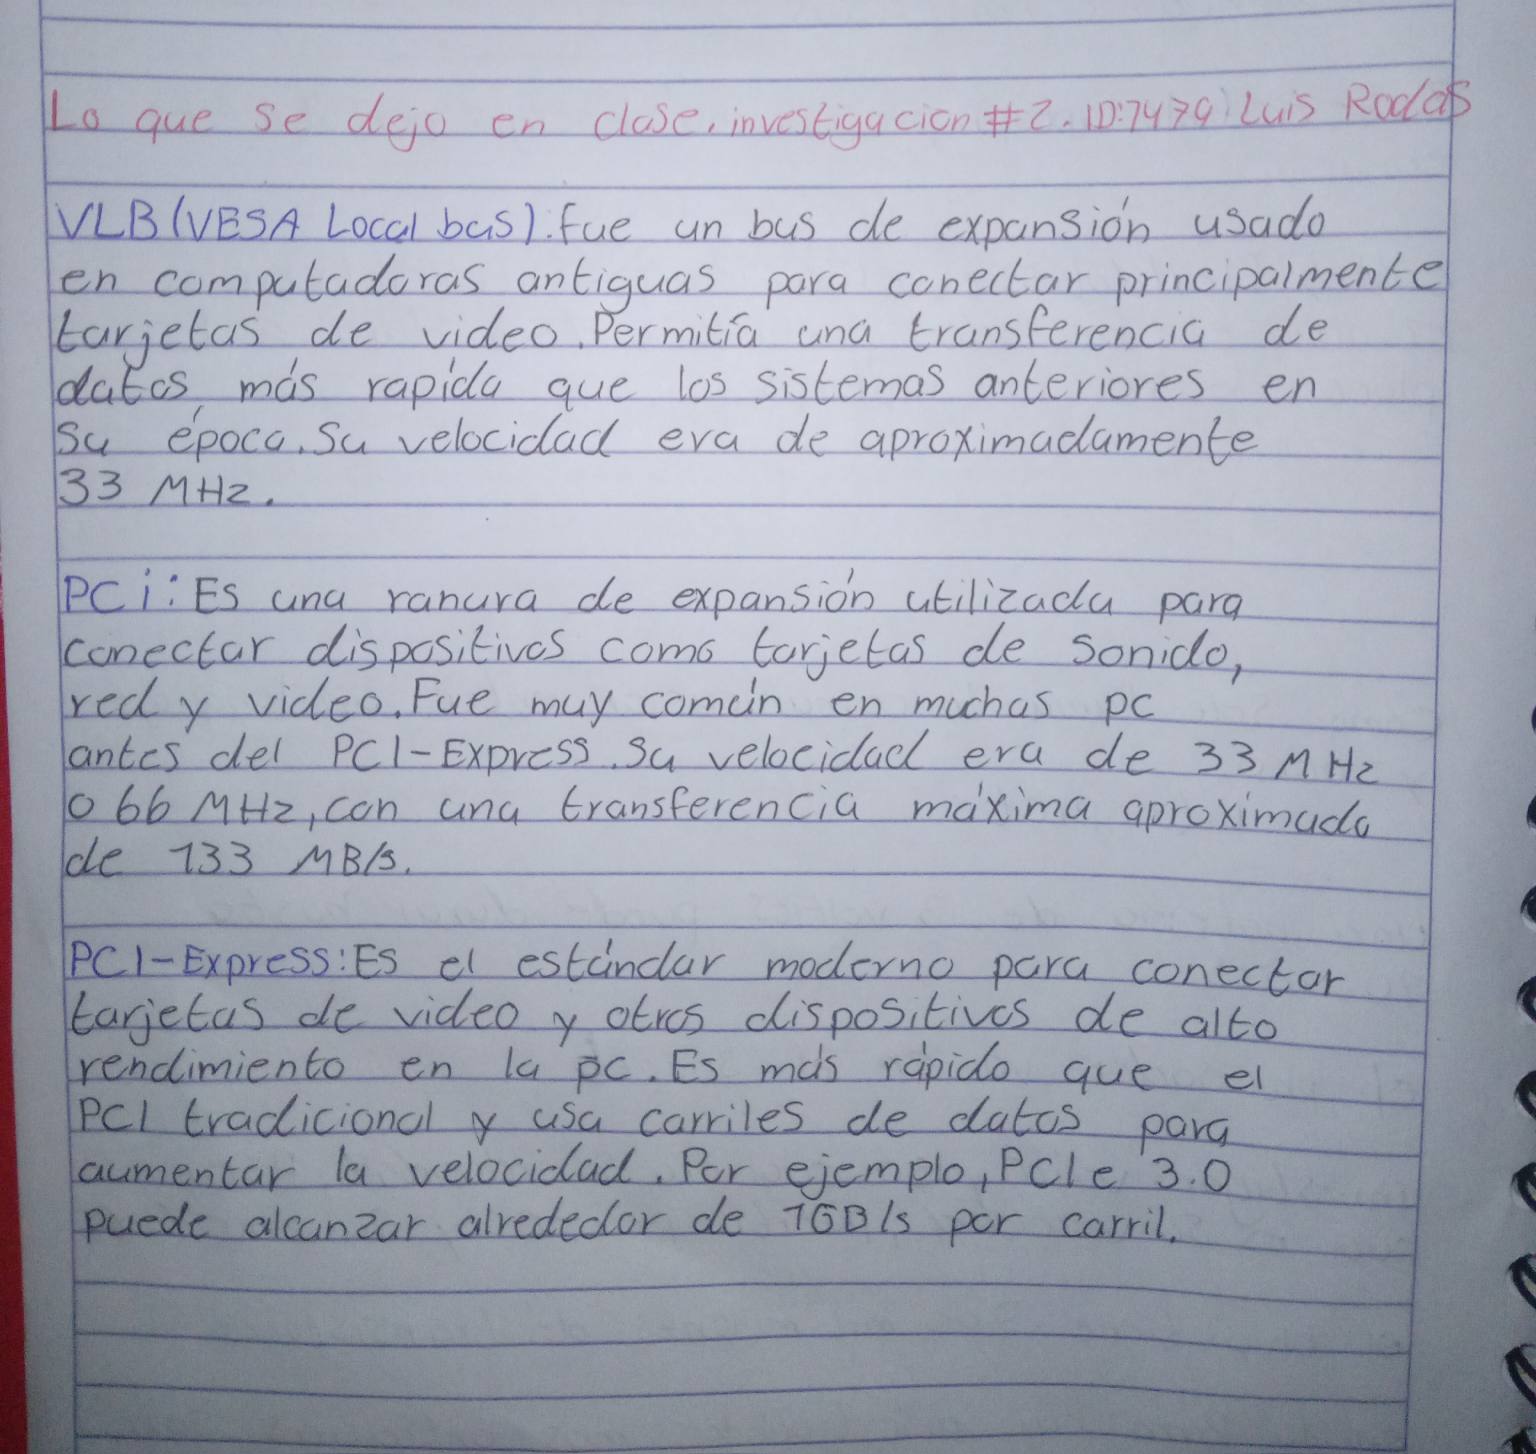 Lo que se dejo en clase. investigacion #2. ID:7479 Luis Rodas
VLB (VESA Local bus). fue un bus de expansión usado
en computadoras antiguas para conectar principalmente
tarjetas de video. Permitía una transferencia de
datos más rapida que los sistemas anteriores en
su época. Su velocidad era de aproximadamente
33 MHz.
PCi: Es una ranura de expansión utilizada para
conectar dispositivos como tarjetas de sonido,
red y video. Fue muy común en muchas pc
antes del PCI-Express. Su velocidad era de 33 MHz
o 66 MHz, con una transferencia máxima aproximada
de 133 MB/s.
PCI-Express: Es el estándar moderno para conectar
tarjetas de video y otros dispositivos de alto
rendimiento en la pc. Es más rápido que el
PCI tradicional y usa carriles de datos para
aumentar la velocidad. Por ejemplo, PCIe 3.0
puede alcanzar alrededor de 1GB/s por carril.